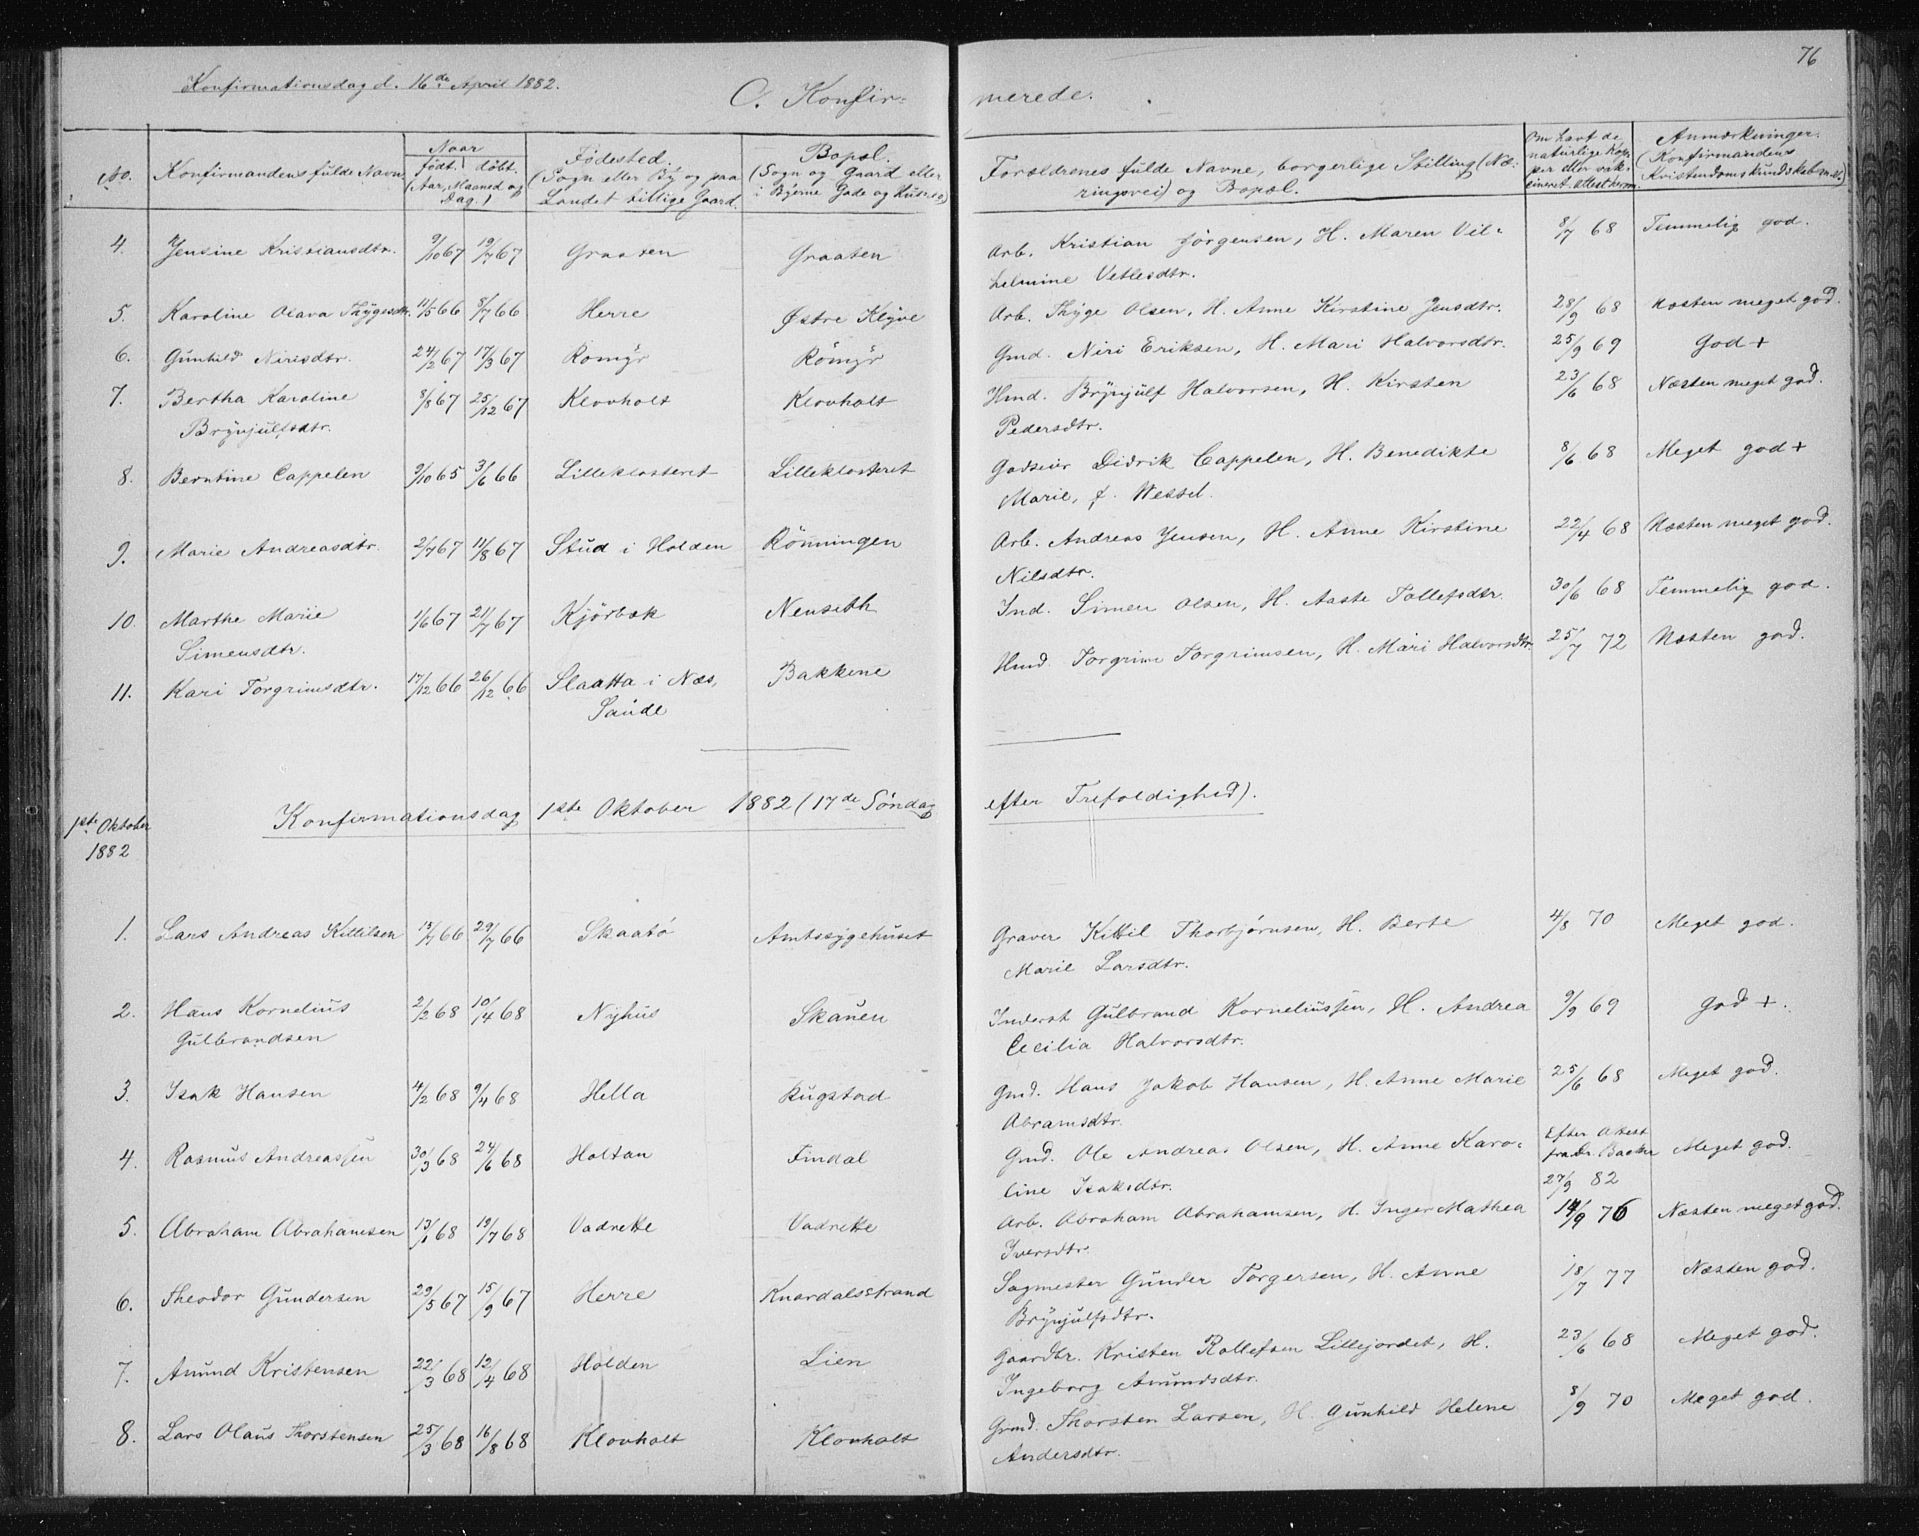 76
Konfirmationsdag d. 16de April 1882.
C. Konfirmerede.
No.
Konfirmandens fulde Navn
Naar
født. døbt.
(Aar, Maaned og Dag.)
Fødested.
(Sogn eller By og paa
Landet tillige Gaard.
Bopæl.
(Sogn og Gaard eller
i Byerne Gade og Husets
Forældrenes fulde Navne, borgerlige Stilling (Næ-
ringsvei) og Bopæl.
Om havt de
naturlige Kop-
per eller vak-
cineret. Attest herom.
Anmærkninger.
(Konfirmandens
Kristendomskundskab m.v.)
4. Jensine Kristiansdtr. 9/10 67 19/7 67 Graaten Graaten Arb. Kristian Jörgensen, H. Maren Vil- 8/7 68 Temmelig god.
helmine Vetlesdtr.
5. Karoline Olava Thygesdtr. 11/5 66 8/7 66 Herre Østre Klyve Arb. Thyge Olsen, H. Anne Kirstine Jensdtr. 28/9 68 Næsten meget god.
6. Gunhild Nirisdtr. 24/2 67 17/3 67 Romyr Römyr Gmd. Niri Eriksen, H. Mari Halvorsdtr. 25/9 69 God +
7. Bertha Karoline 8/8 67 25/12 67 Klovholt Klovholt Hmd. Brynjulf Halvorsen, H. Kirsten 23/6 68 Næsten meget god.
Brynjulfsdtr. Pedersdtr.
8. Berntine Cappelen 9/10 65 3/6 66 Lilleklosteret Lilleklosteret Godseier Didrik Cappelen, H. Benedikte 8/6 68 Meget god +
Marie, f. Wessel.
9. Marie Andreasdtr. 2/7 67 11/8 67 Stud i Holden Rönningen Arb. Andreas Jensen, H. Anne Kirstine 22/4 68 Næsten meget god.
Nilsdtr.
10. Marthe Marie 1/6 67 21/7 67 Kjörbæk Nenseth Ind. Simen Olsen, H. Aaste Tollefsdtr. 30/6 68 Temmelig god.
Simensdtr.
11. Kari Torgrimsdtr. 17/12 66 26/12 66 Slaatta i Næs, Bakkene Hmd. Torgrim Torgrimsen, H. Mari Halvorsdtr. 25/7 72 Næsten god.
Saude
1ste Oktober
1882
Konfirmationsdag 1ste Oktober 1882 (17de Söndag efter Trefoldighed).
1. Lars Andreas Kittilsen 13/7 66 29/7 66 Skaatö Amtssygehuset Graver Kittil Thorbjörnsen, H. Berte 4/8 70 Meget god.
Marie Larsdtr.
2. Hans Kornelius 2/2 68 10/4 68 Nyhus Skauen Inderst Gulbrand Korneliussen, H. Andrea 9/9 69 God +.
Gulbrandsen Cecilia Halvorsdtr.
3. Isak Hansen 4/2 68 9/4 68 Hella Rugstad Gmd. Hans Jakob Hansen, H. Anne Marie 25/6 68 Meget god.
Abramsdtr.
4. Rasmus Andreassen 30/3 68 24/6 68 Holtan Findal Gmd. Ole Andreas Olsen, H. Anne Karo- Efter Attest
fra Dr. Backer Meget god.
line Isaksdtr. 27/9 82
5. Abraham Abrahamsen 13/1 68 19/7 68 Vadrette Vadrette Arb. Abraham Abrahamsen, H. Inger Mathea 14/9 76 Næsten meget god.
Iversdtr.
6. Theodor Gundersen 29/5 67 15/9 67 Herre Knardalsstrand Sagmester Gunder Torgersen, H. Anne 18/7 77 Næsten god.
Brynjulfsdtr.
7. Amund Kristensen 22/3 68 12/4 68 Holden Lien Gaardbr. Kristen Rollefsen Lillejordet, H. 23/6 68 Meget god.
Ingeborg Amundsdtr.
8. Lars Olaus Thorstensen 25/3 68 16/8 68 Klovholt Klovholt Grmd. Thorsten Larsen, H. Gunhild Helene 8/9 70 Meget god.
Andersdtr.